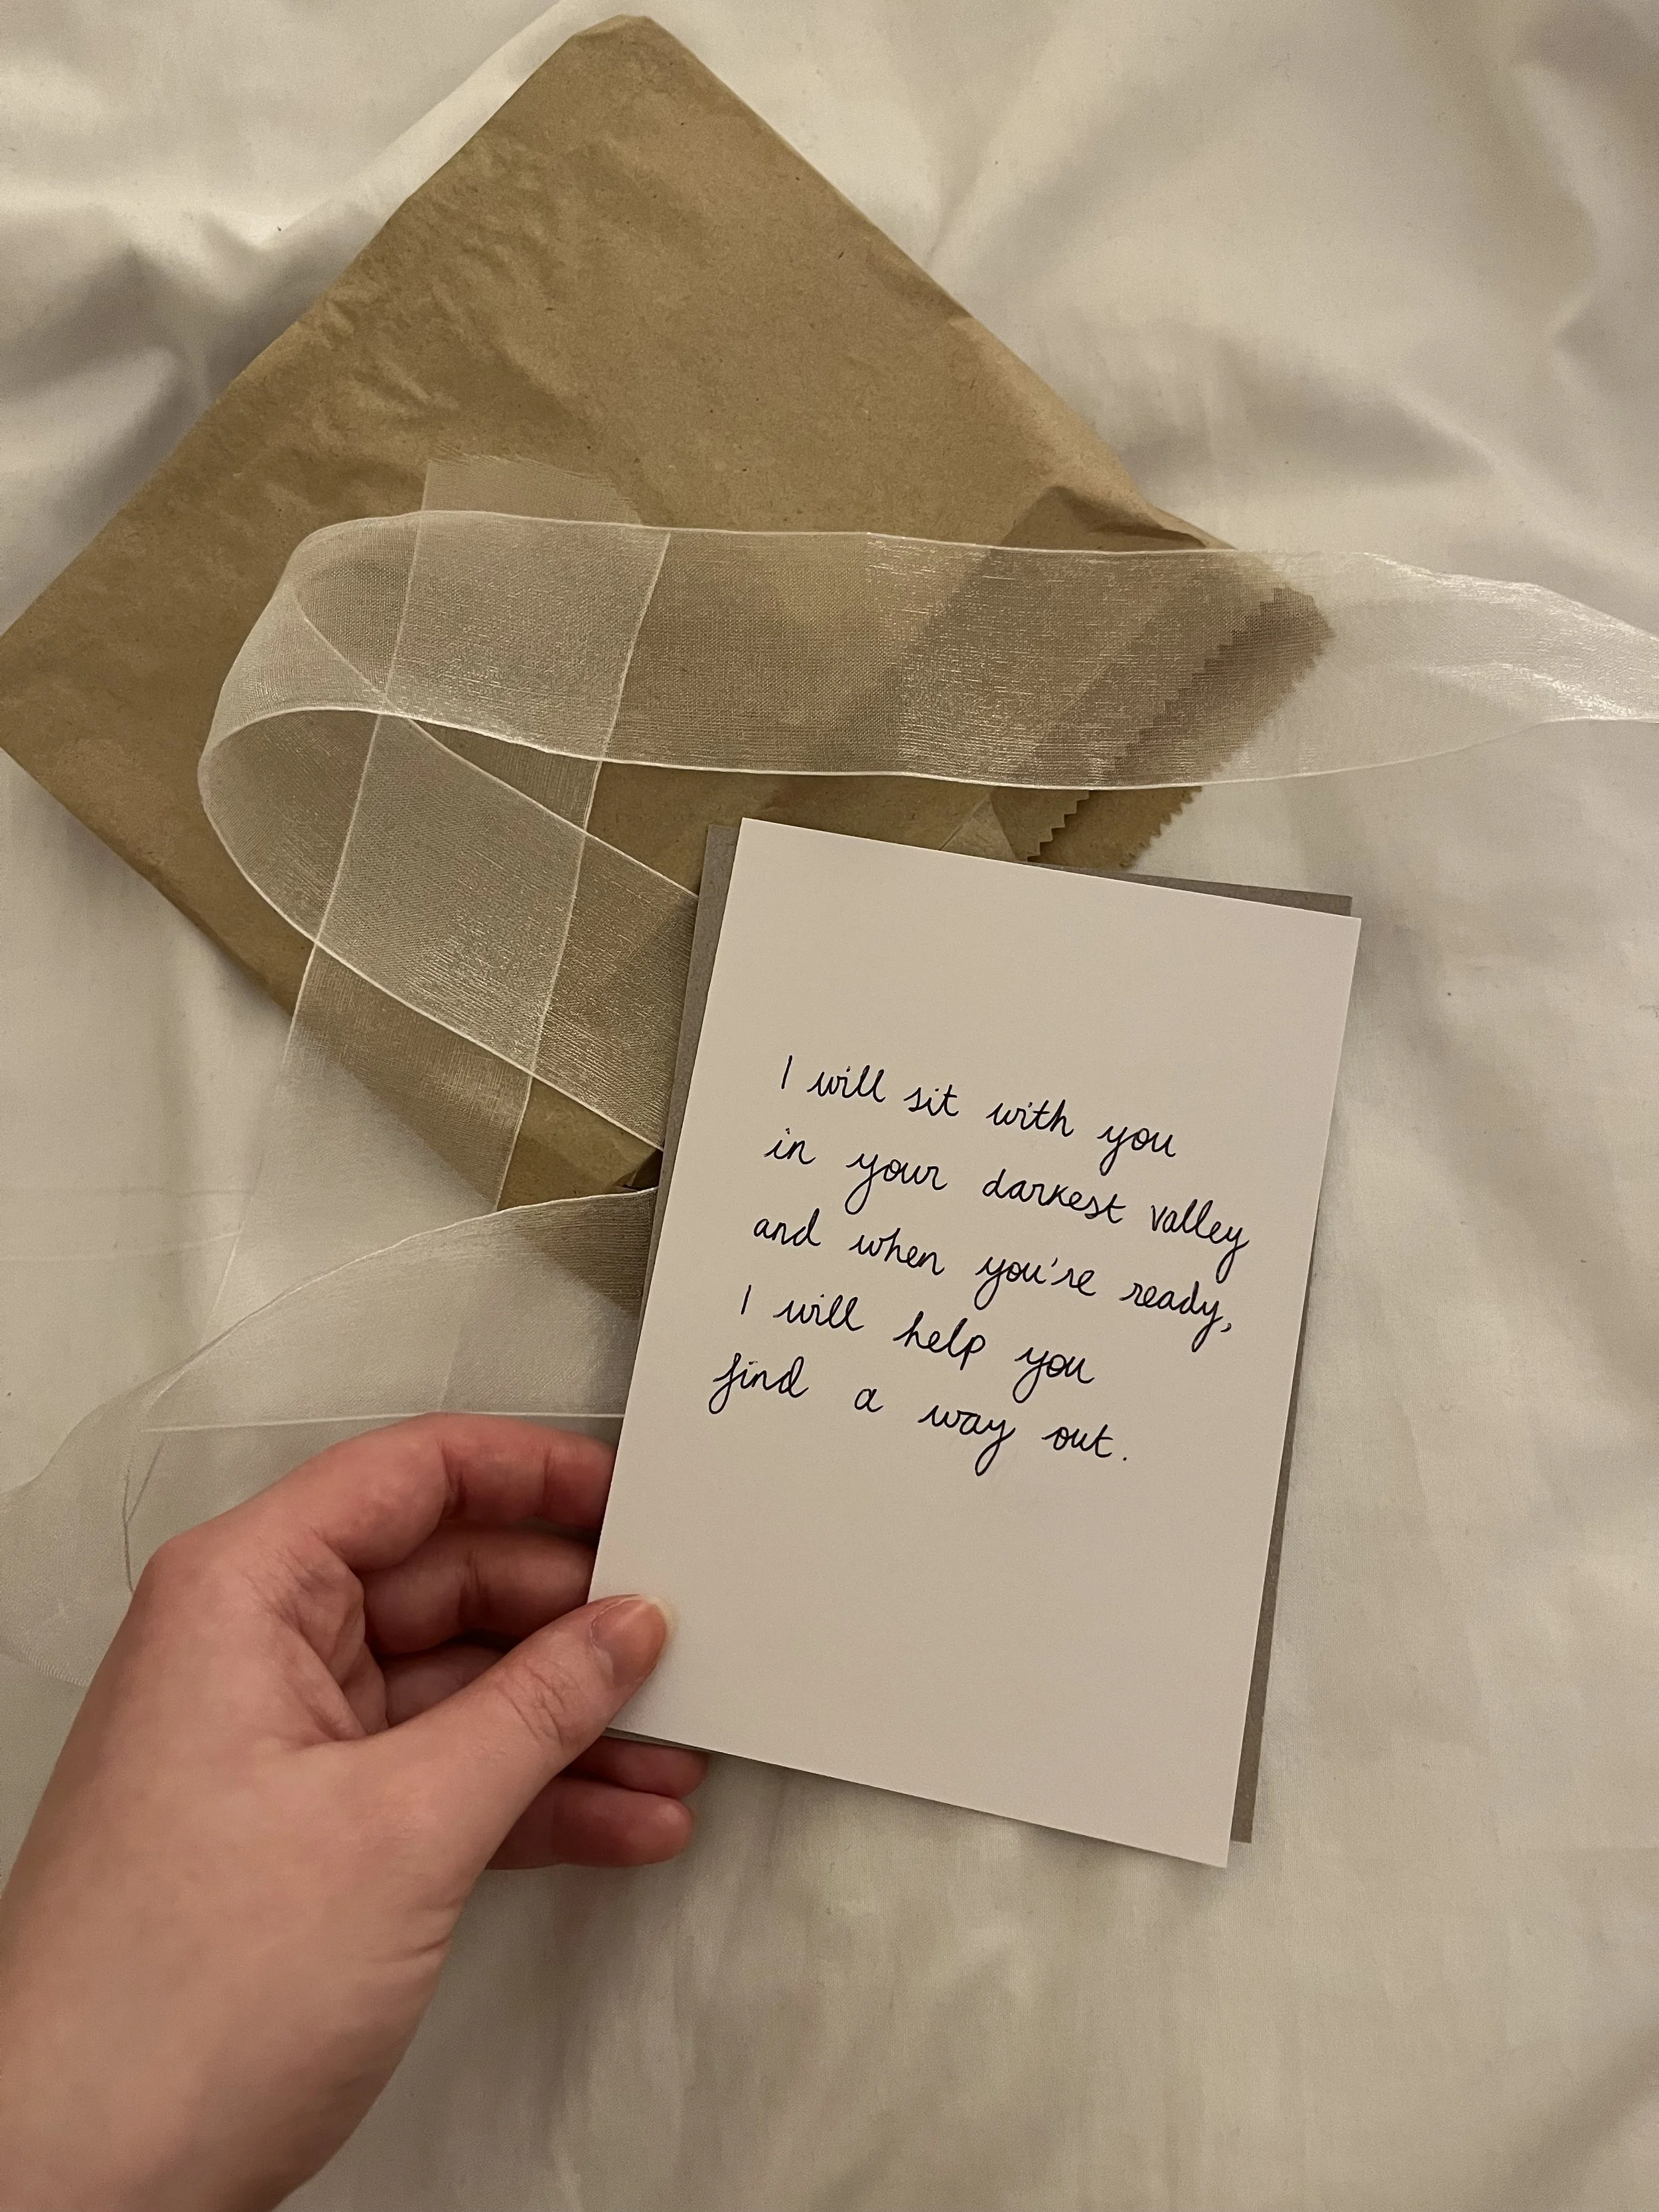 I will sit with you
in your darkest valley
and when you're ready,
I will help you
find a way out.